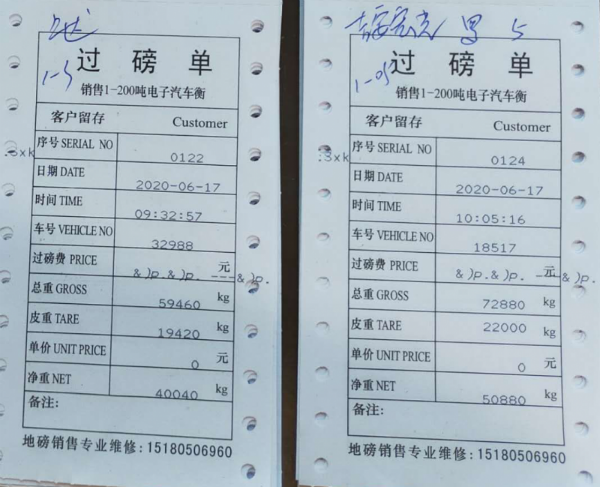 1-5
过磅单
销售1-200吨电子汽车衡
客户留存 Customer
.3xk
序号 SERIAL NO 0122
日期 DATE 2020-06-17
时间 TIME 09:32:57
车号 VEHICLE NO 32988
过磅费 PRICE &)p.&)p. ---&)p. 元
总重 GROSS 59460 kg
皮重 TARE 19420 kg
单价 UNIT PRICE 0 元
净重 NET 40040 kg
备注:
地磅销售专业维修:15180506960
1-05
过磅单
销售1-200吨电子汽车衡
客户留存 Customer
:3xk
序号 SERIAL NO 0124
日期 DATE 2020-06-17
时间 TIME 10:05:16
车号 VEHICLE NO 18517
过磅费 PRICE &)p.&)p. ---&)p. 元
总重 GROSS 72880 kg
皮重 TARE 22000 kg
单价 UNIT PRICE 0 元
净重 NET 50880 kg
备注:
地磅销售专业维修:15180506960